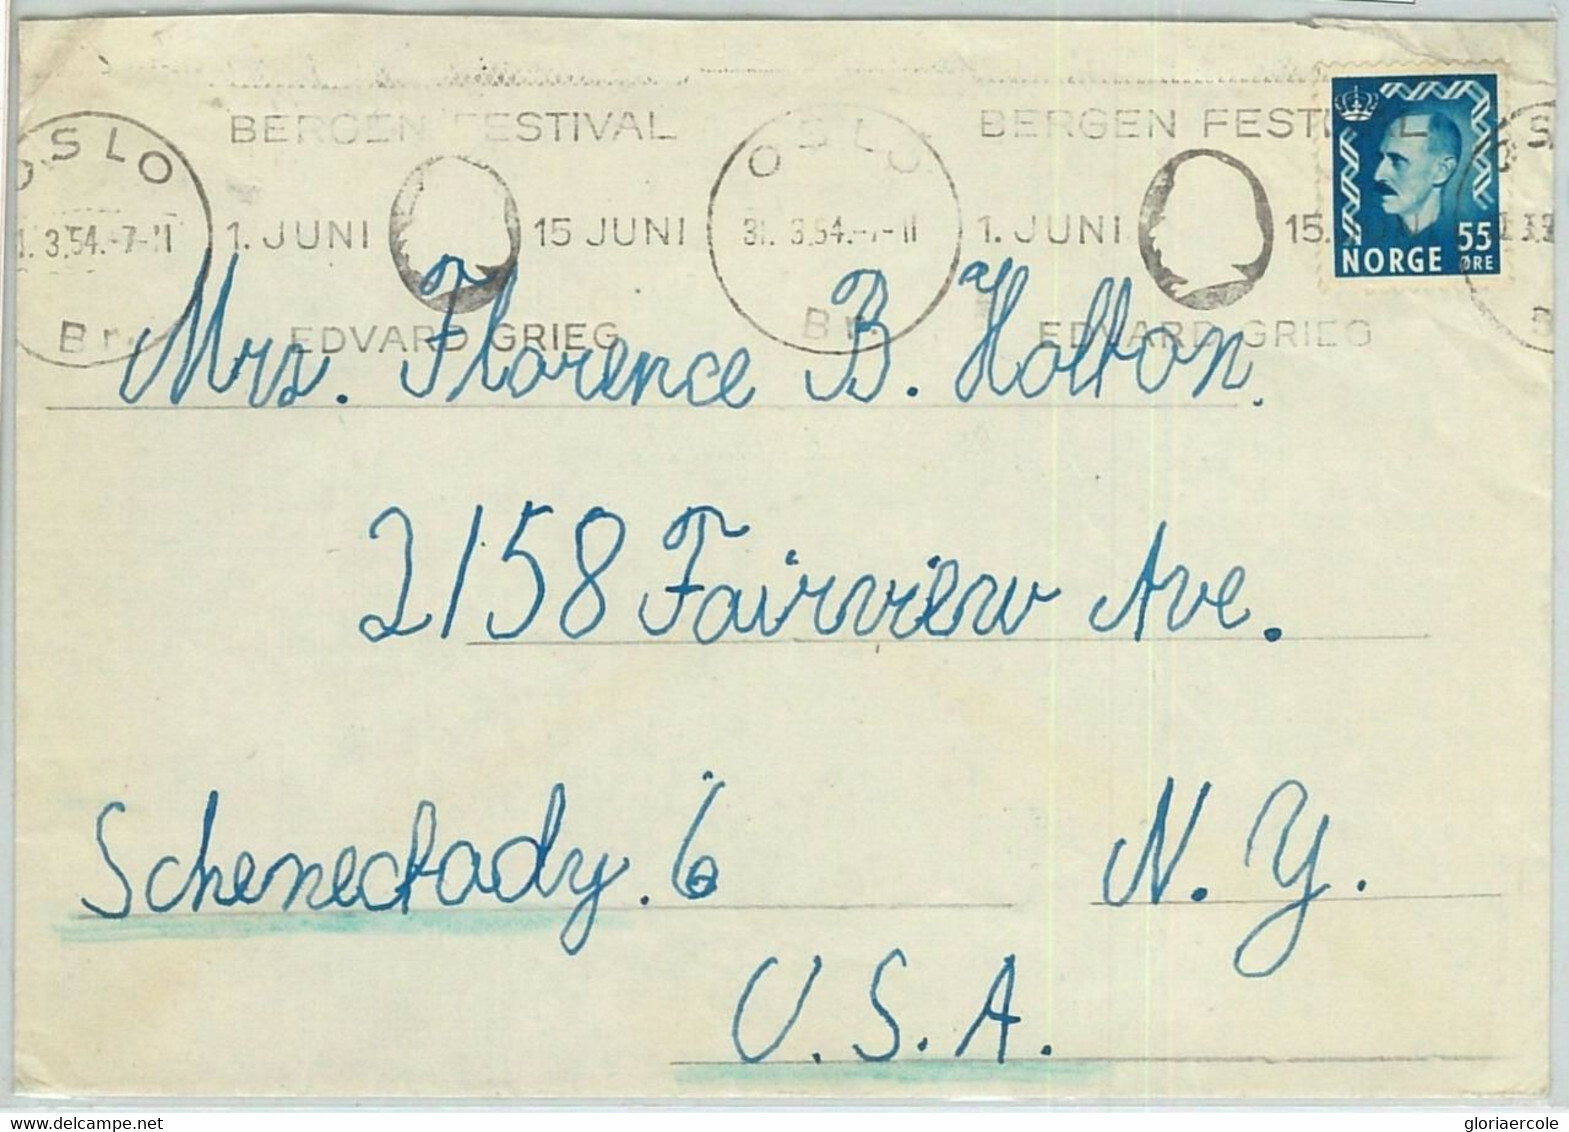 BERGEN FESTIVAL BERGEN FESTIVAL
OSLO OSLO
1. 3.54.-7-11 1. JUNI 15 JUNI 31. 3.54.-7-11 1. JUNI 15.
Br. EDVARD GRIEG Br. EDVARD GRIEG
55
NORGE ØRE
Mrs. Florence B. Holton.
2158 Fairview Ave.
Schenectady. 6 N. Y.
U.S.A.
www.delcampe.net gloriaercole